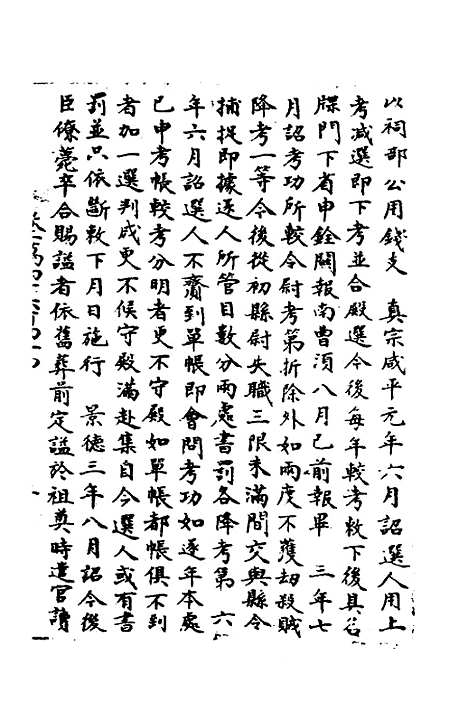 以祠部公用錢支　真宗咸平元年六月詔選人用上
考减選即下考並合殿選今後每年較考敕下後具名
牒門下省申銓關報南曹須八月已前報畢　三年七
月詔考功所較令尉考第折除外如兩度不獲劫殺賊
降考一等今後從初縣尉失職三限未滿間交與縣令
捕捉即據逐人所管目數分兩處書罰各降考第　六
年六月詔選人不齎到單帳即會問考功如逐年本處
已申考帳較考分明者更不守殿如單帳都帳俱不到
者加一選判成更不候守殿滿赴集自今選人或有書
罰並只依斷敕下月日施行　景德三年八月詔今後
臣僚薨卒合賜謚者依舊葬前定謚於祖奠時遣官讀